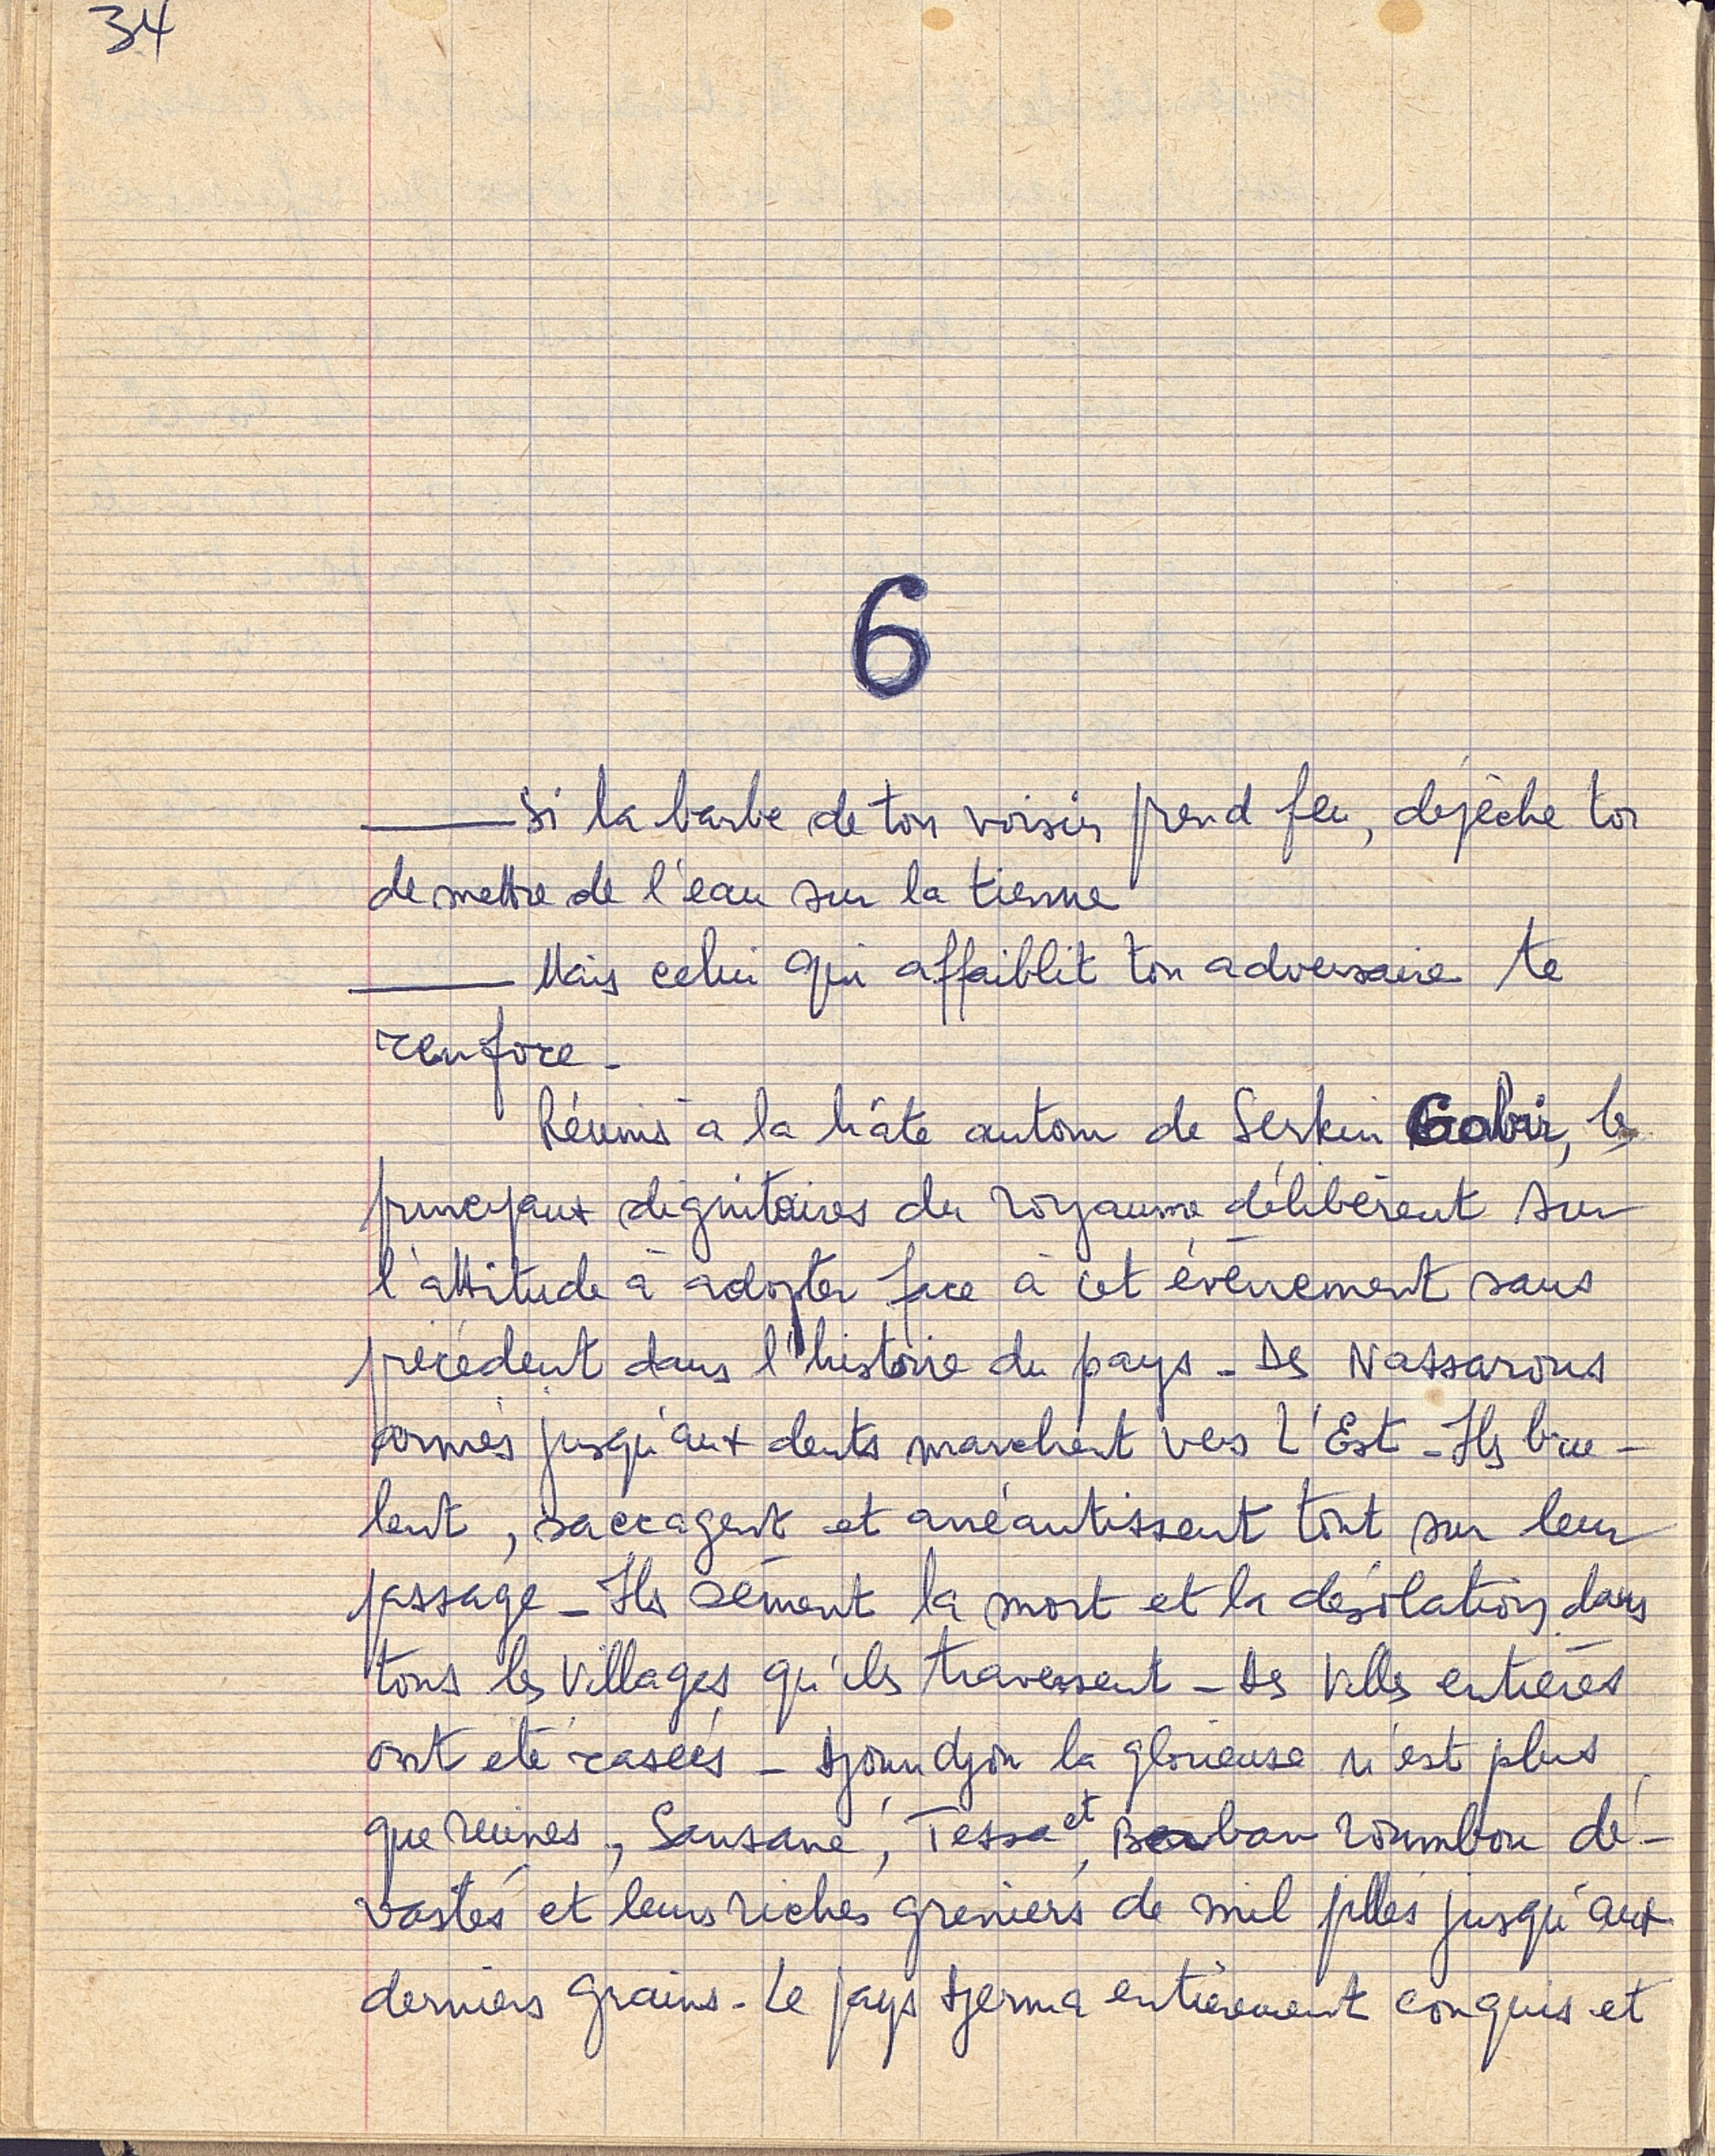 34
6
— Si la barbe de ton voisin prend feu, dépèche toi
de mettre de l'eau sur la tienne
— Mais celui qui affaiblit ton adversaire te
renforce -
Réunis à la hâte autour de Serkin Gobir, les
principaux dignitaires du royaume délibèrent sur
l'attitude à adopter face à cet évènement sans
précédent dans l'histoire du pays - Des Nassarous
armés jusqu'aux dents marchent vers L'Est - Ils bru-
lent, saccagent et anéantissent tout sur leur
passage - Ils sèment la mort et la désolation dans
tous les villages qu'ils traversent - Des villes entières
ont été rasées - Djoundjou la glorieuse n'est plus
que ruines, Sansané, Tessa et, Banban roumbou dé-
vastés et leurs riches greniers de mil pillés jusqu'aux
derniers grains - Le pays djerma entièrement conquis et